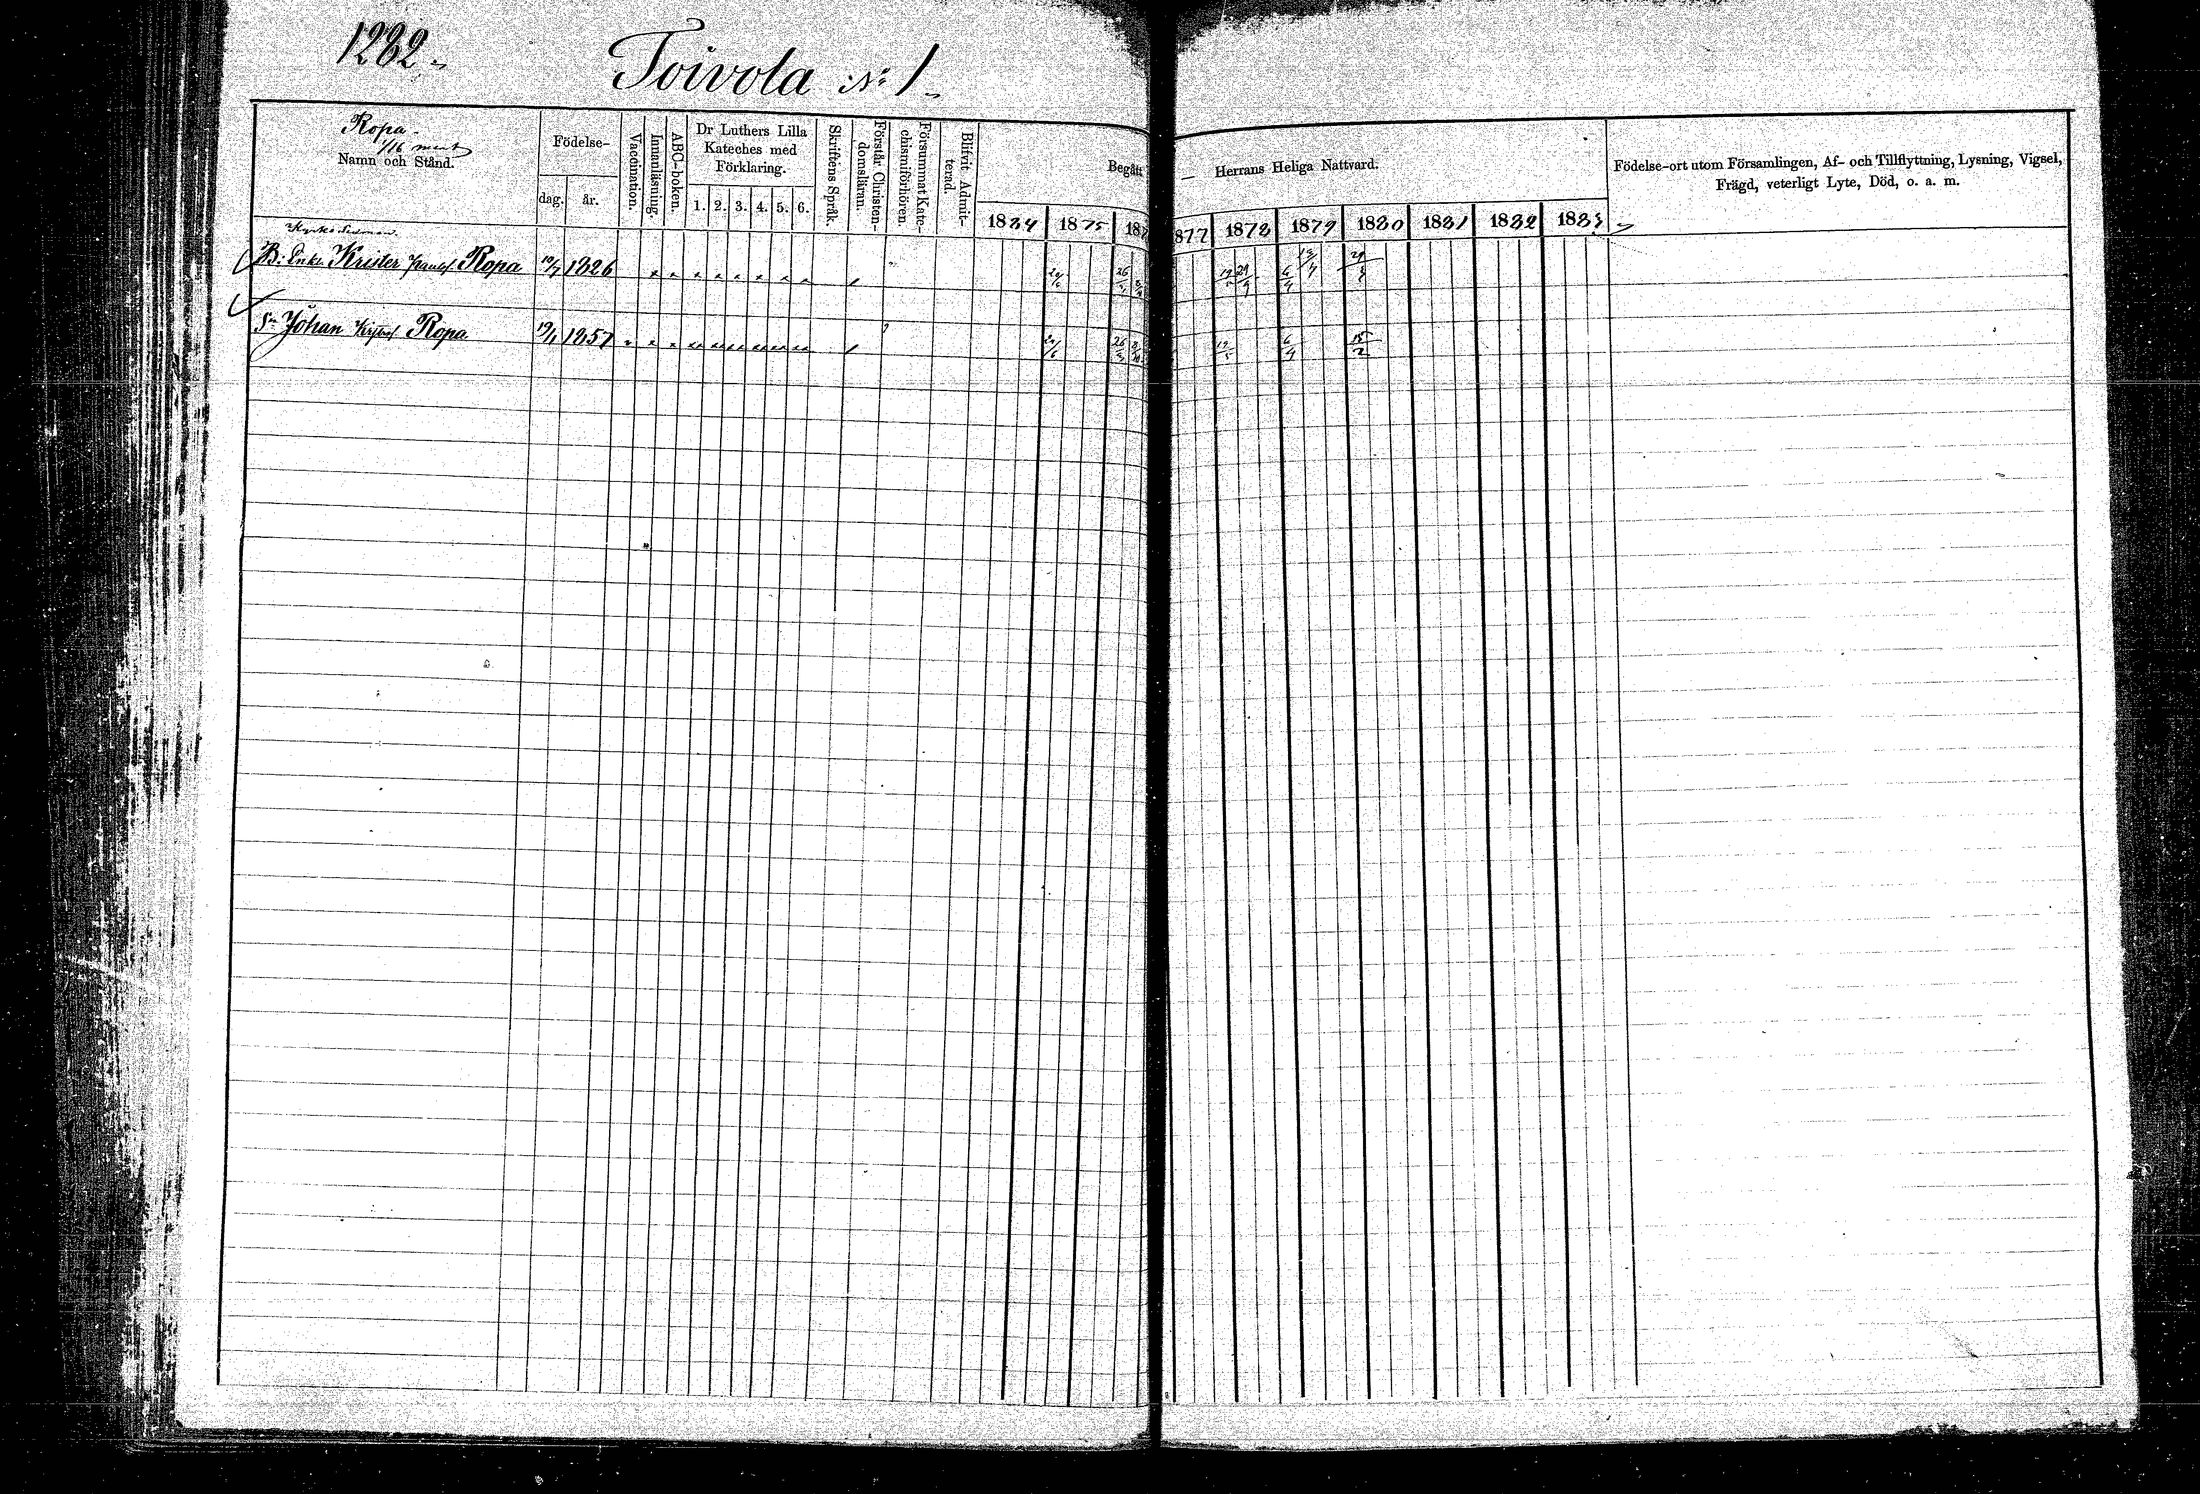 1282.
Toivola No 1
Ropa.
1/16 mant
Namn och Stånd.
Födelse-
dag. år.
Vaccination.
Innanläsning.
ABC-boken.
Dr Luthers Lilla
Kateches med
Förklaring.
1. 2. 3. 4. 5. 6.
Skriftens Språk.
Förstår Christen-
domsläran.
Försummat Kate-
chismiförhören.
Blifvit Admit-
terad.
Begått
— Herrans Heliga Nattvard.
1834 1875 187
877 1878 1879 1880 1881 1882 1883
Födelse-ort utom Församlingen, Af- och Tillflyttning, Lysning, Vigsel,
Frägd, veterligt Lyte, Död, o. a. m.
B: Enkl. Krister Paulss Ropa 10/7 1826 24/6 26 19 29/9 6/4 19/7 29/8
Sn Johan Ropa 19/1 1857 24/6 26 19/5 6/4 15/2